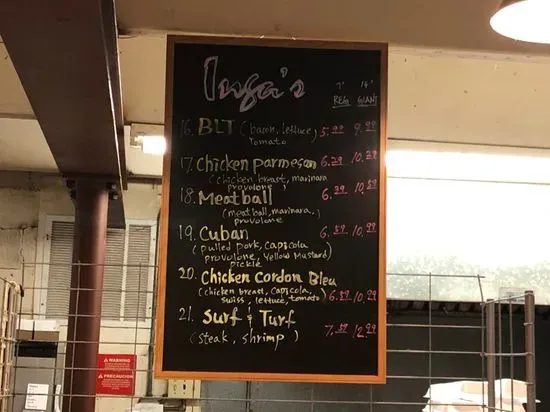 Inga's
7" 14"
REG GIANT
16. BLT (bacon, lettuce, 5.99 9.99
tomato)
17. Chicken parmesan 6.29 10.29
(chicken breast, marinara
provolone)
18. Meatball 6.29 10.29
(meatball, marinara,
provolone)
19. Cuban 6.89 10.99
(pulled pork, capicola
provolone, Yellow Mustard)
pickle
20. Chicken Cordon Bleu
(chicken breast, capicola,
swiss, lettuce, tomato) 6.89 10.99
21. Surf & Turf 7.89 12.99
(steak, shrimp)
WARNING
PRECAUCION